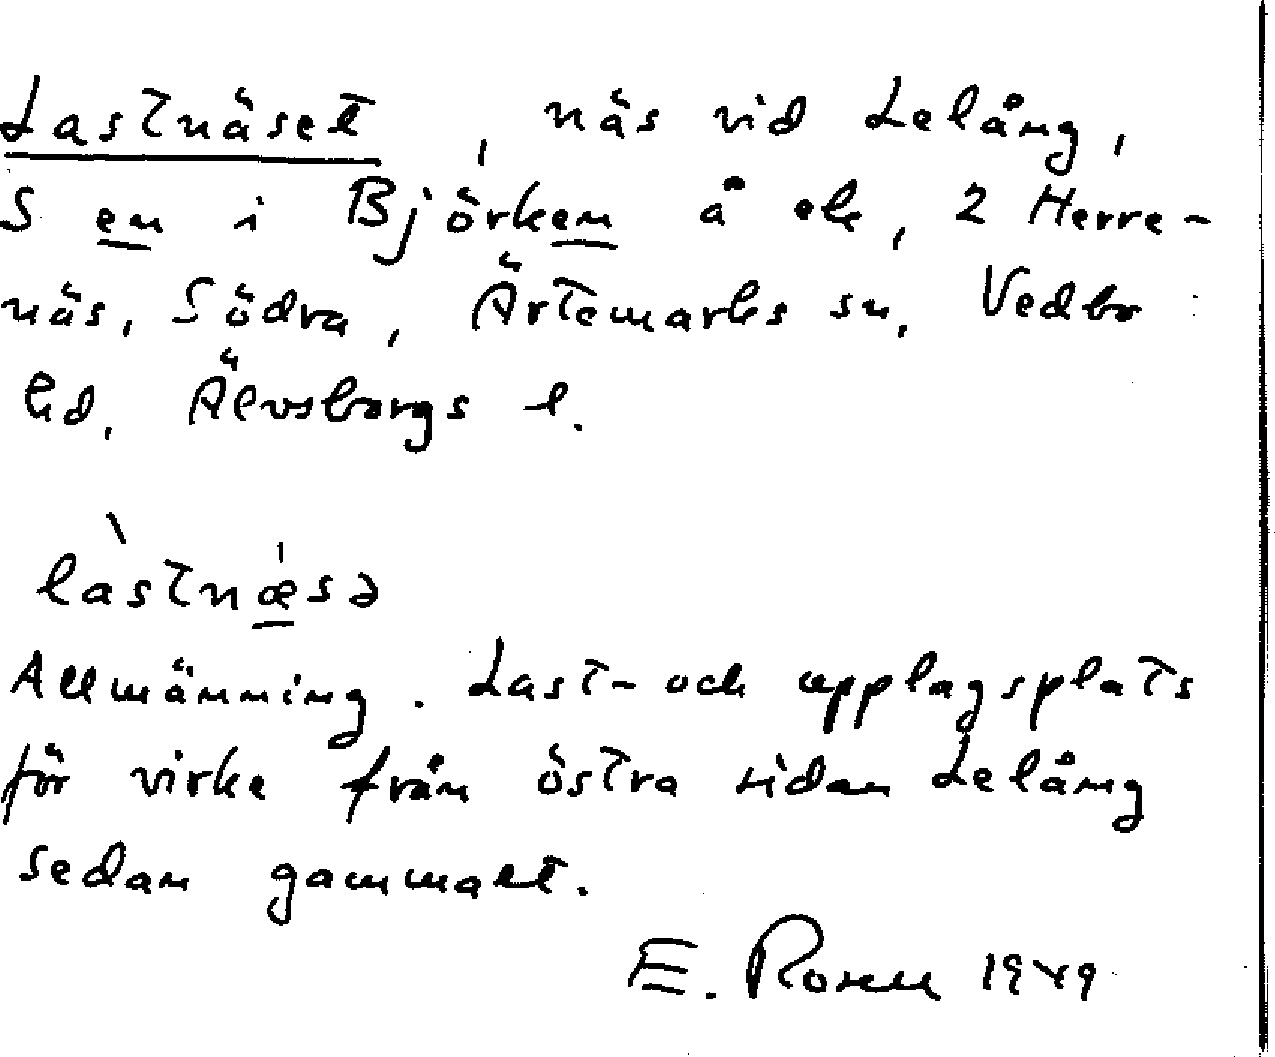 Lastnäset, näs vid Lelång,
S em i Björkem å ek, 2 Herre-
näs, Södra, Ärtemarks sn, Vedbo
hd, Älvsborgs l.
làstnǽ̱sə
Allmänning. Last- och upplagsplats
för virke från östra sidan Lelång
sedan gammalt.
E. Rosell 1949